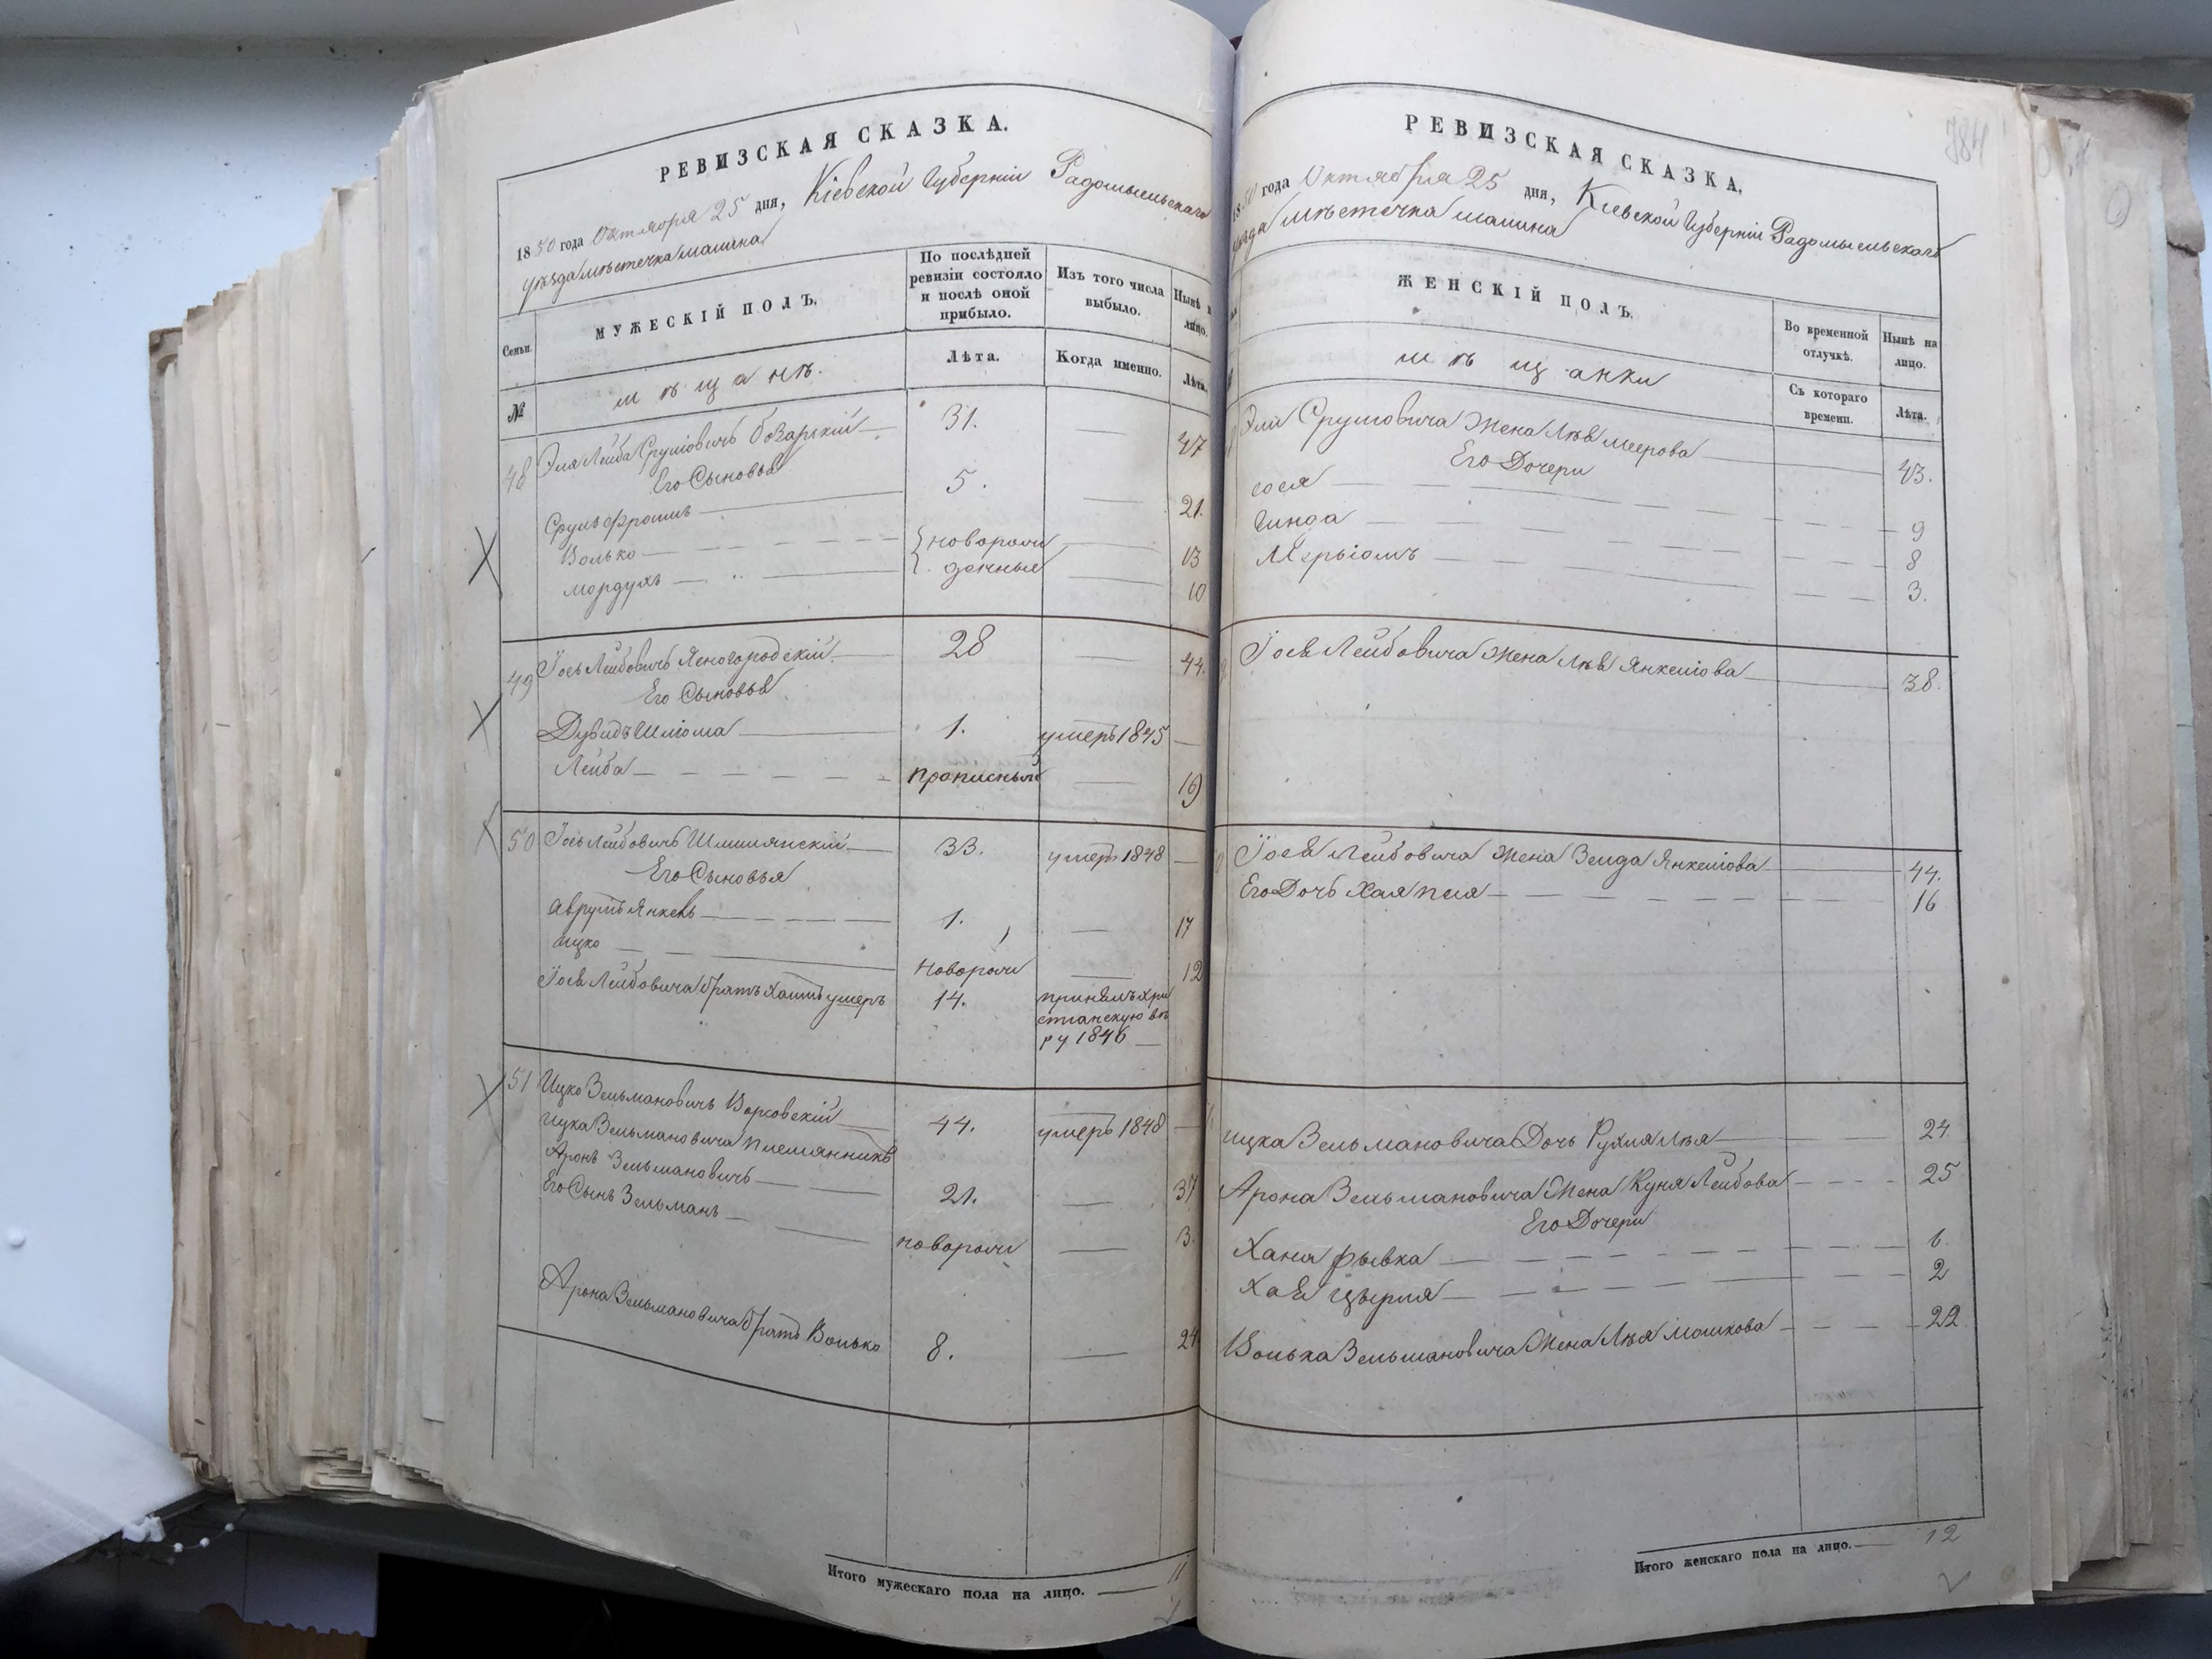 РЕВИЗСКАЯ СКАЗКА.
1850 года Октября 25 дня, Кіевской Губерніи Радомысльскаго
уѣзда мѣстечка малина
Семьи.
МУЖЕСКІЙ ПОЛЪ.
По послѣдней ревизіи состояло и послѣ оной прибыло.
Изъ того числа выбыло.
Нынѣ на лицо.
№
мѣщанѣ.
Лѣта.
Когда именно.
Лѣта.
48 Эля Лейба Сруліовичъ Боярскій 31. 47
Его Сыновья
Сруль Фроимъ 5. 21.
Волько новорож 13
мордухъ денные 10
49 Іось Лейбовичъ Ясногородскій 28 44.
Его Сыновья
Дувидъ Шліома 1. умеръ 1845
Лейба прописный 19
50 Іось Лейбовичъ 33. умеръ 1848
Его Сыновья
Аврумъ Янкель 1. 17
ицко новорож 12
Іося Лейбовича братъ Хаимъ умеръ 14. принялъ хри
стіанскую вѣ
ру 1846
51 Ицко Зельмановичъ Барковскій 44. умеръ 1848
ицка Зельмановича племянникъ
Аронъ Зельмановичъ 21. 37
Его Сынъ Зельманъ новорож 3.
Арона Зельмановича братъ Волько 8. 24
Итого мужескаго пола на лицо. 11
784
РЕВИЗСКАЯ СКАЗКА.
1850 года Октября 25 дня, Кіевской Губерніи Радомысльскаго
уѣзда мѣстечка малина
ЖЕНСКІЙ ПОЛЪ.
Во временной отлучкѣ.
Нынѣ на лицо.
мѣщанки
Съ котораго времени.
Лѣта.
Эли Сруловича жена Лѣя меерова 43.
Его Дочери
сося 9
Гинда 8
Меріамъ 3.
Іося Лейбовича жена Лѣя Янкеліова 38.
Іося Лейбовича жена Зелда Янкеліова 44.
Его Дочь Хая 16
ицка Зельмановича Дочь Рухля Лѣя 24.
Арона Зельмановича жена Куня Лейбова 25
Его Дочери
Хана рывка 6.
Хая цырля 2
Волька Зельмановича жена Лѣя мошкова 22.
Итого женскаго пола на лицо. 12